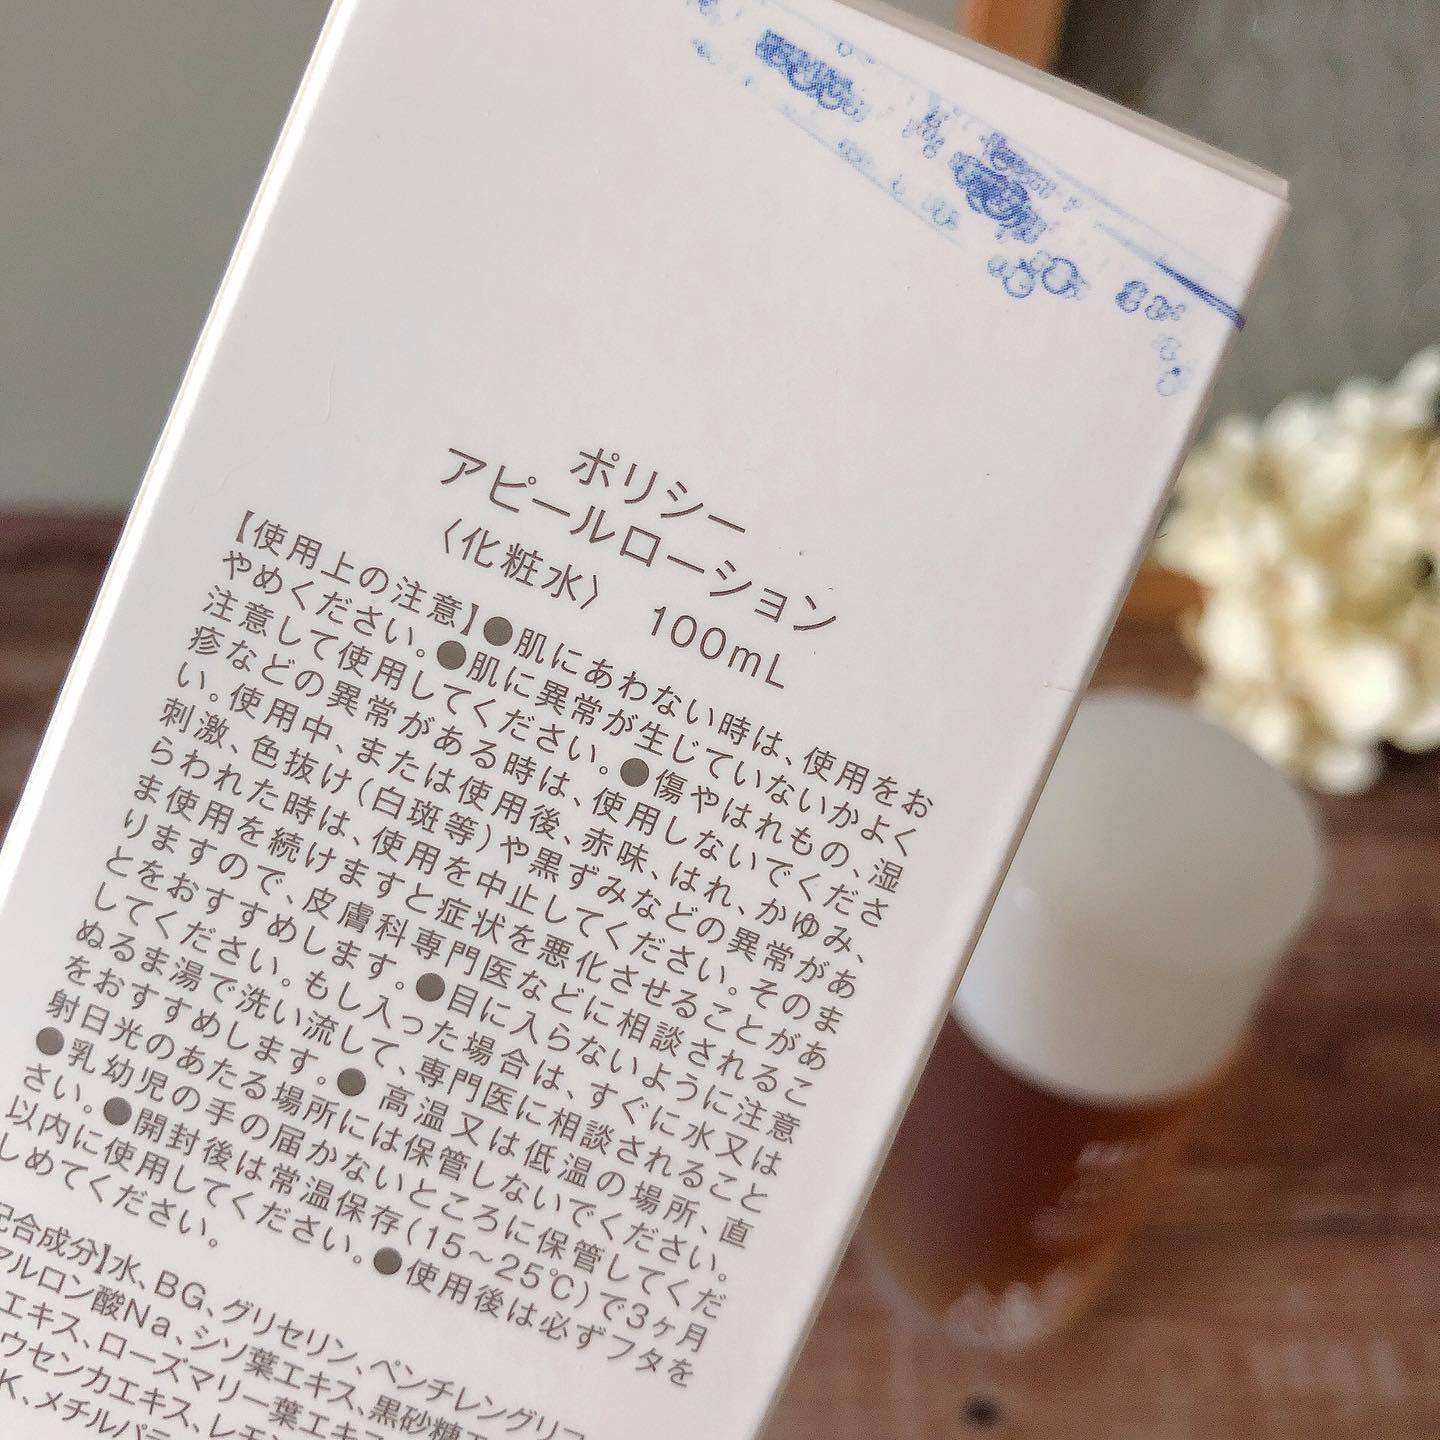 ポリシー
アピールローション
〈化粧水〉 100mL
【使用上の注意】●肌にあわない時は、使用をお
やめください。●肌に異常が生じていないかよく
注意して使用してください。●傷やはれもの、湿
疹などの異常がある時は、使用しないでくださ
い。使用中、または使用後、赤味、はれ、かゆみ、
刺激、色抜け(白斑等)や黒ずみなどの異常があ
らわれた時は、使用を中止してください。そのま
ま使用を続けますと症状を悪化させることがあ
りますので、皮膚科専門医などに相談されるこ
とをおすすめします。●目に入らないように注意
してください。もし入った場合は、すぐに水又は
ぬるま湯で洗い流して、専門医に相談されること
をおすすめします。●高温又は低温の場所、直
射日光のあたる場所には保管しないでください。
●乳幼児の手の届かないところに保管してくだ
さい。●開封後は常温保存(15〜25℃)で3ヶ月
以内に使用してください。●使用後は必ずフタを
しめてください。
配合成分】水、BG、グリセリン、ペンチレングリコ
アルロン酸Na、シソ葉エキス、黒砂糖エ
エキス、ローズマリー葉エキ
ウセンカエキス、レモン
K、メチルパラ